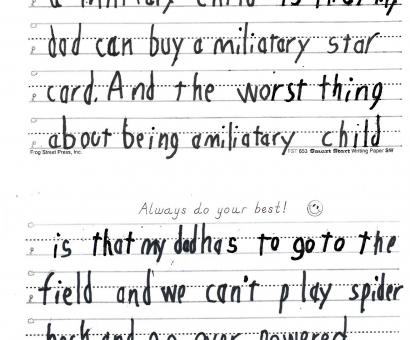 a military child is that my
dad can buy a miliatary star
card. And the worst thing
about being a miliatary child
Frog Street Press, Inc. FST 653 Smart Start Writing Paper SW
Always do your best!
is that my dad has to go to the
field and we can't play spider
back and go over powered